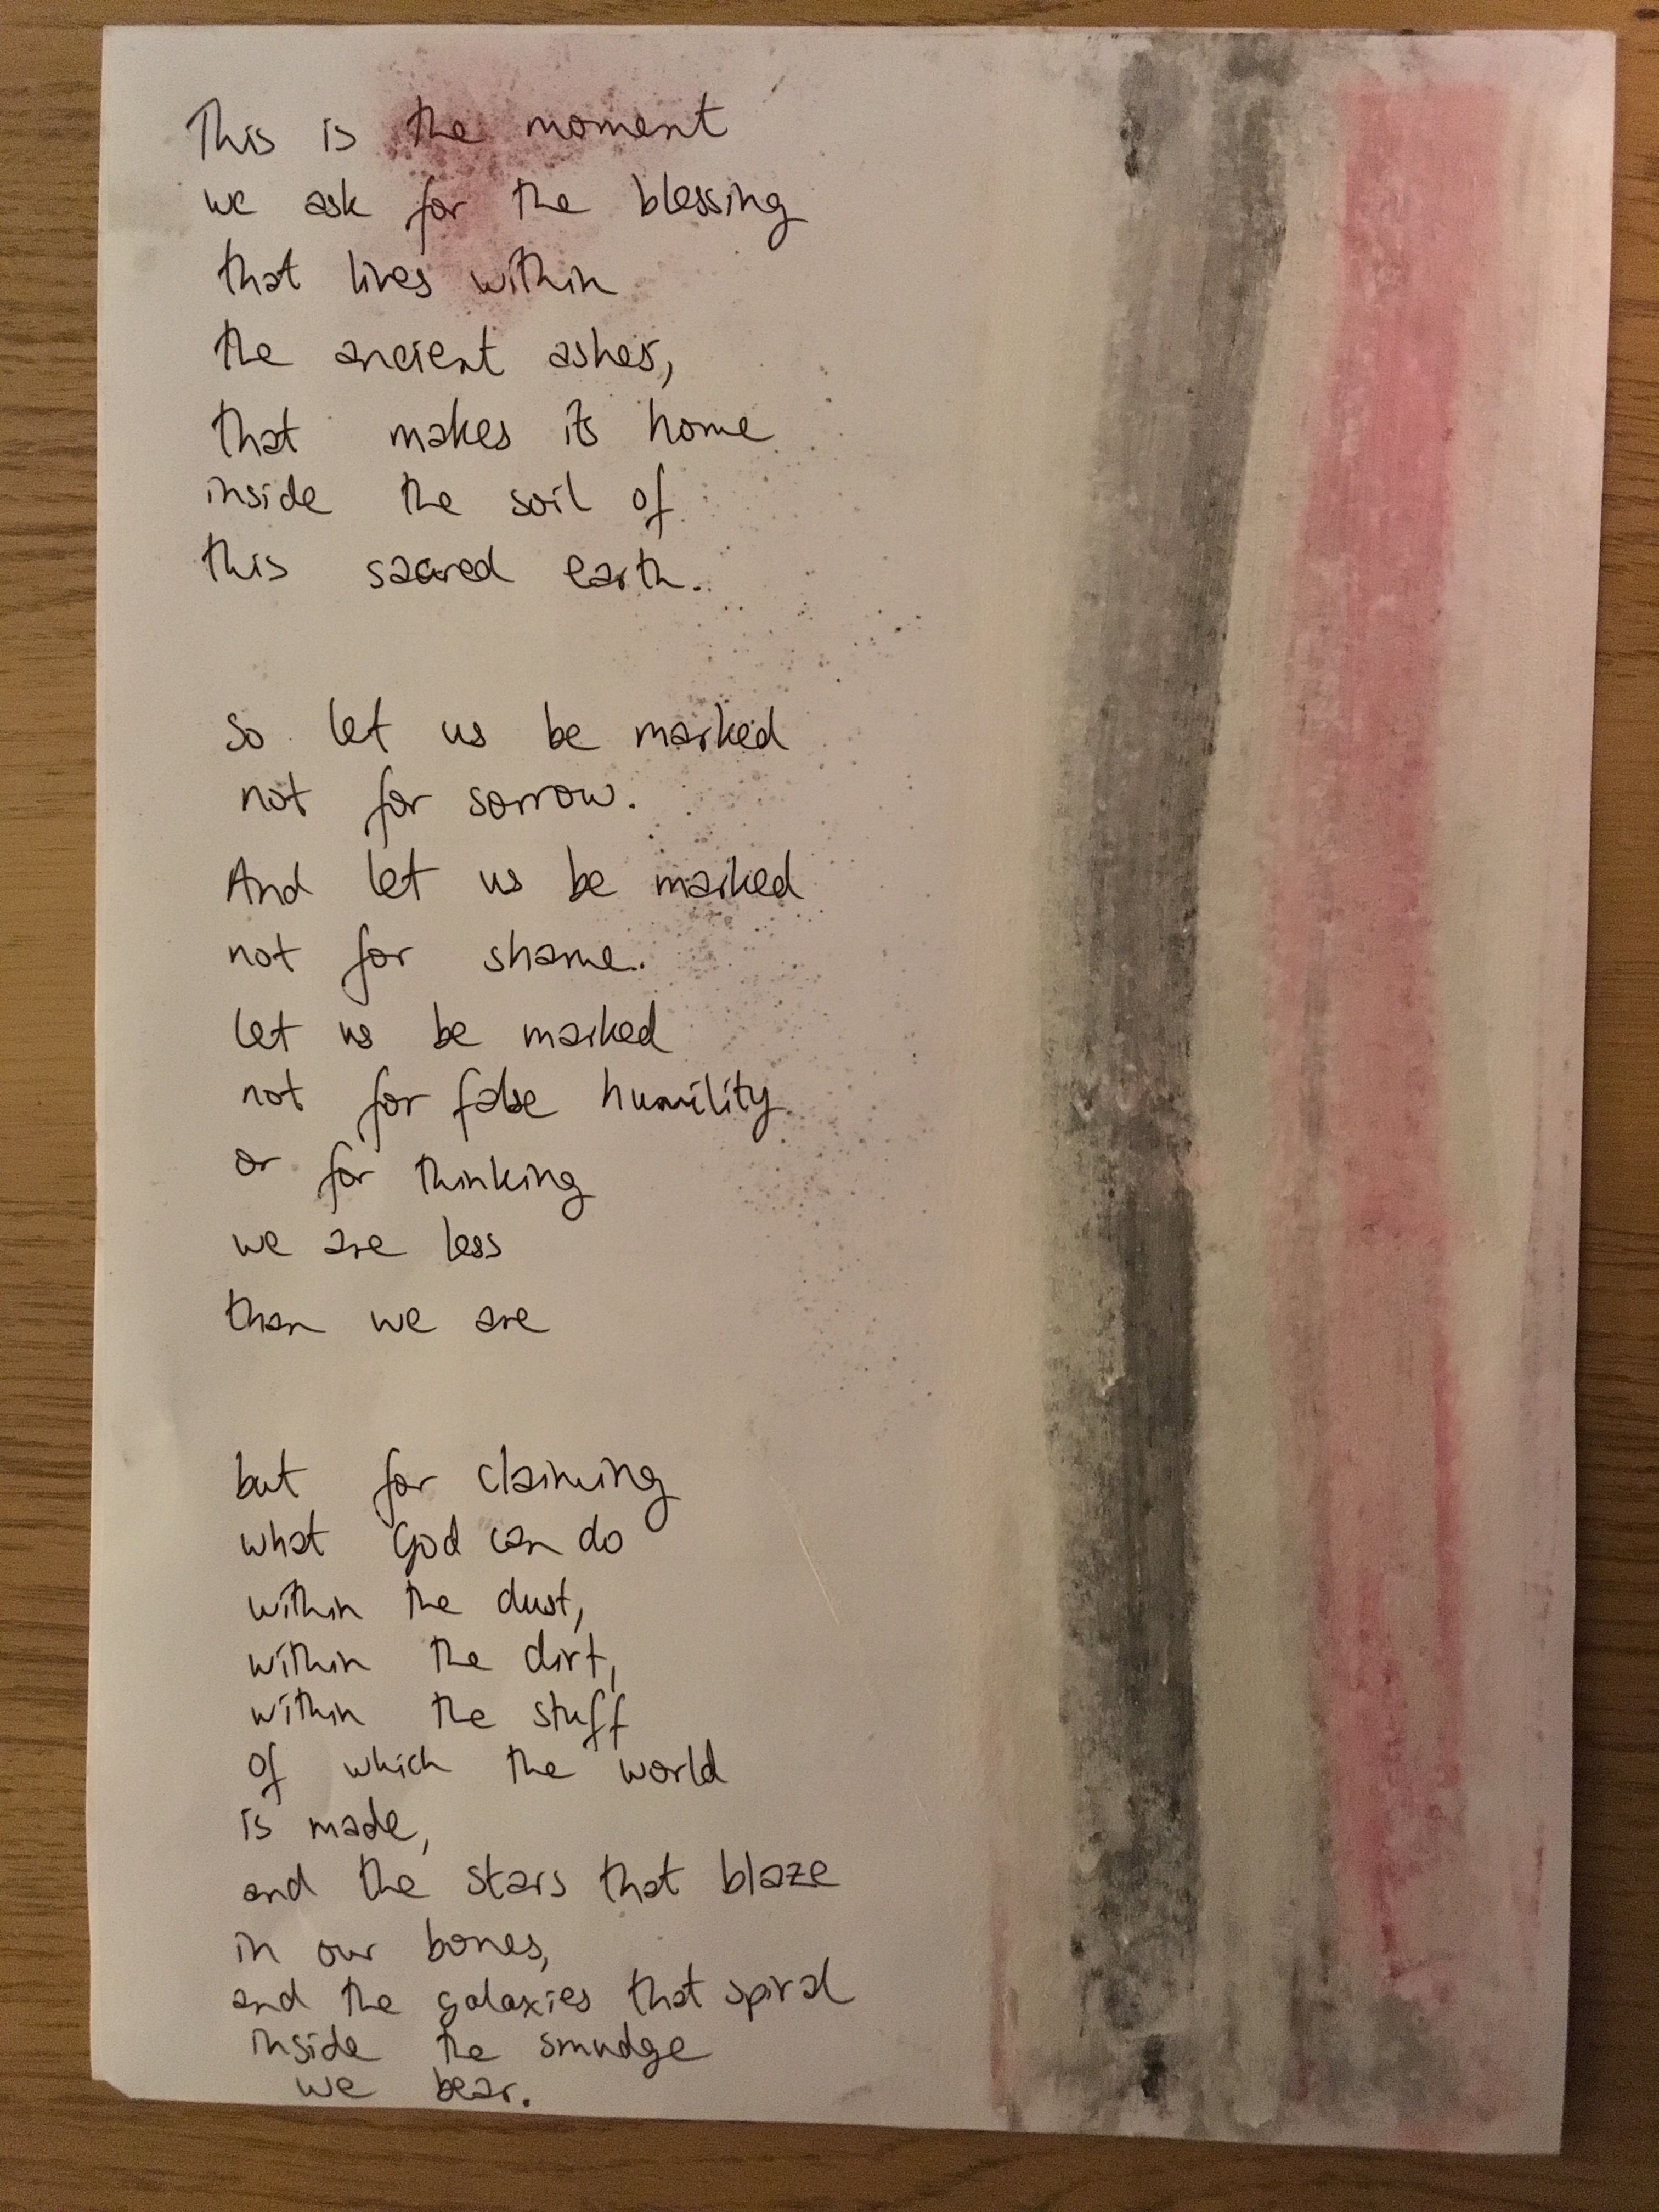 This is the moment
we ask for the blessing
that lives within
the ancient ashes,
that makes its home
inside the soil of
this sacred earth.
So let us be marked
not for sorrow.
And let us be marked
not for shame.
Let us be marked
not for false humility
or for thinking
we are less
than we are
but for claiming
what God can do
within the dust,
within the dirt,
within the stuff
of which the world
is made,
and the stars that blaze
in our bones,
and the galaxies that spiral
inside the smudge
we bear.